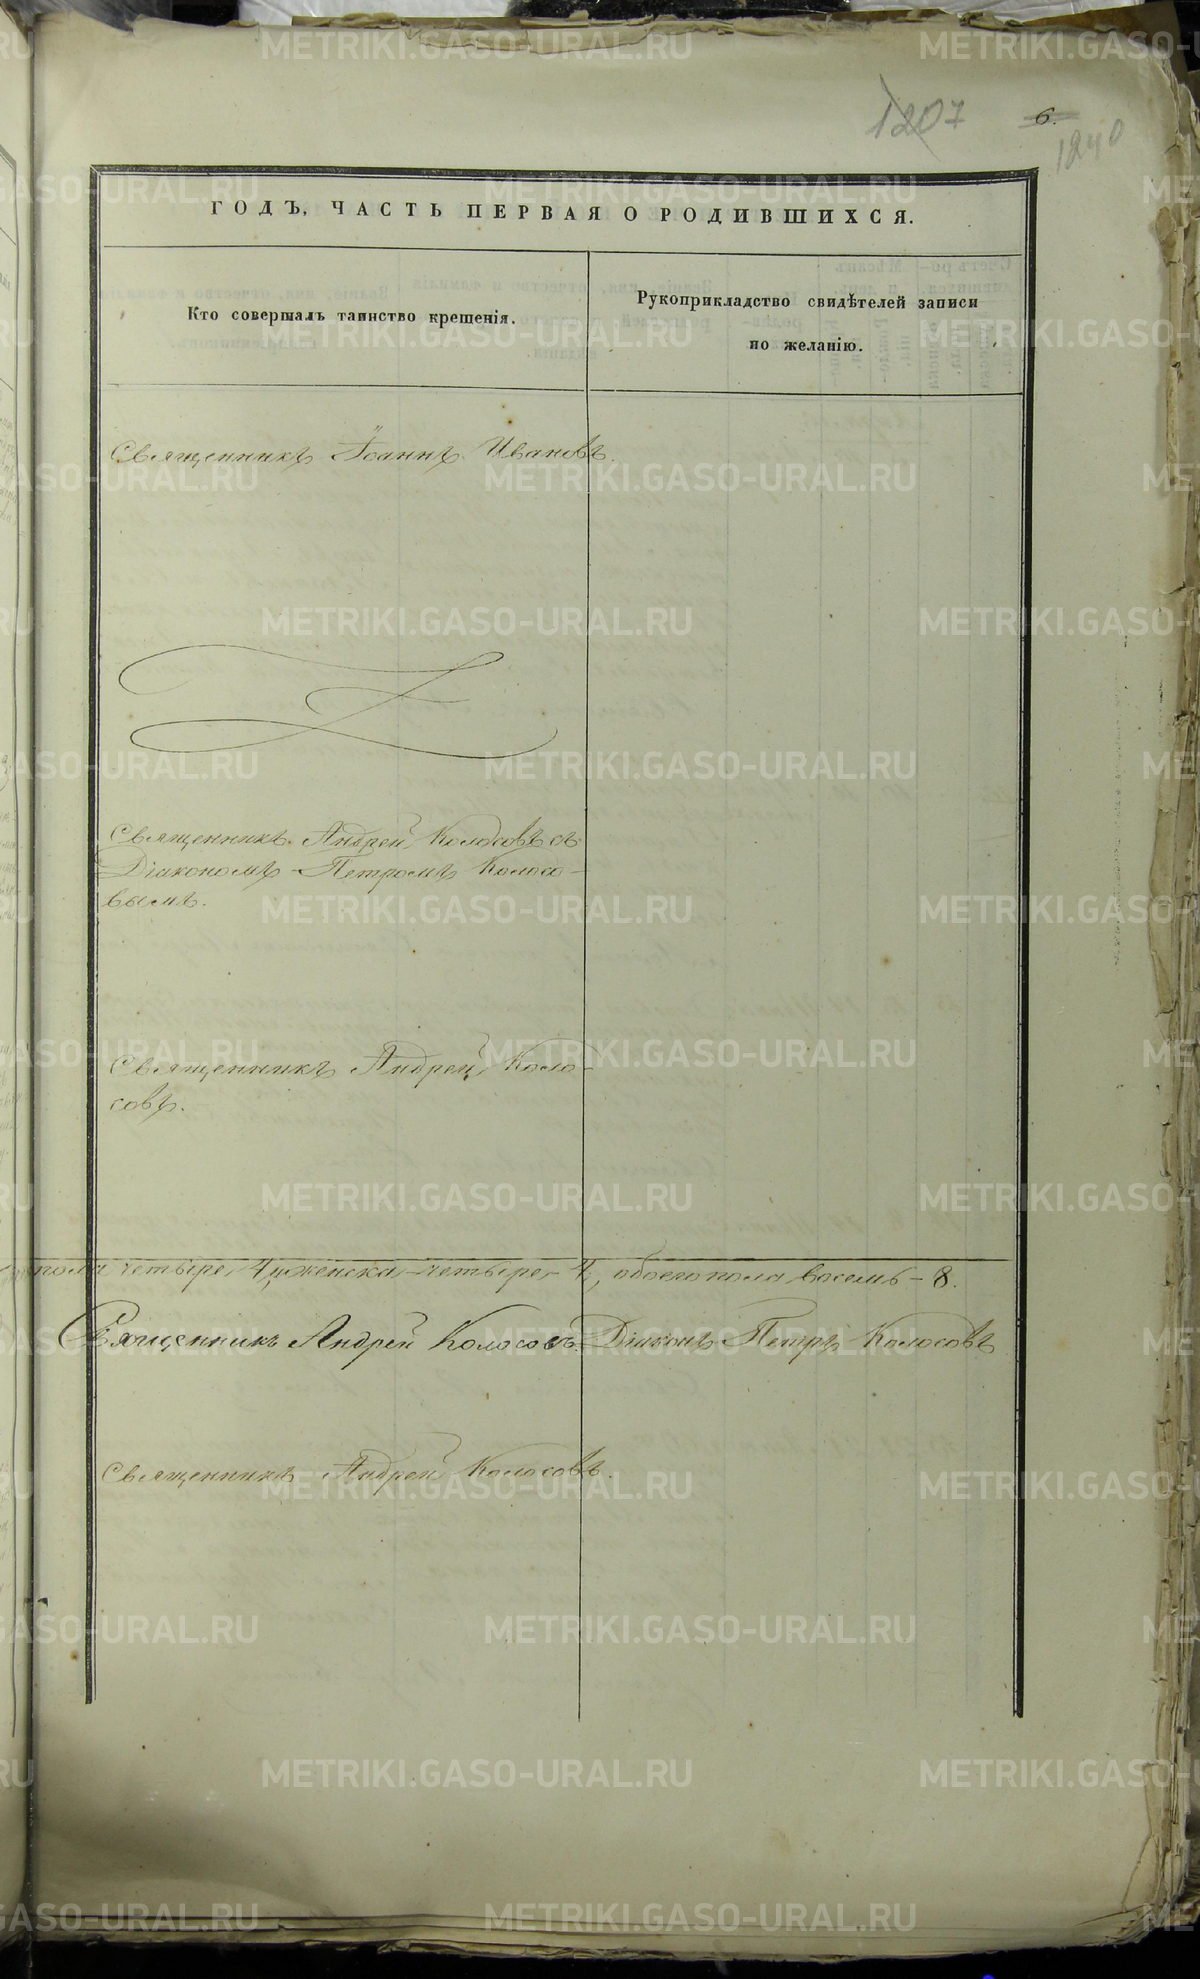 1207
6.
1240
ГОДЪ, ЧАСТЬ ПЕРВАЯ О РОДИВШИХСЯ.
Кто совершалъ таинство крещенія.
Рукоприкладство свидѣтелей записи
по желанію.
Священникъ Іоаннъ Ивановъ.
Священникъ Андрей Колосовъ съ
Діакономъ Петромъ Колосо-
вымъ.
Священникъ Андрей Коло-
совъ.
пола четыре, 4, женска четыре, 4, обоего пола восемь – 8.
Священникъ Андрей Колосовъ. Діаконъ Петръ Колосовъ
Священникъ Андрей Колосовъ.
METRIKI.GASO-URAL.RU